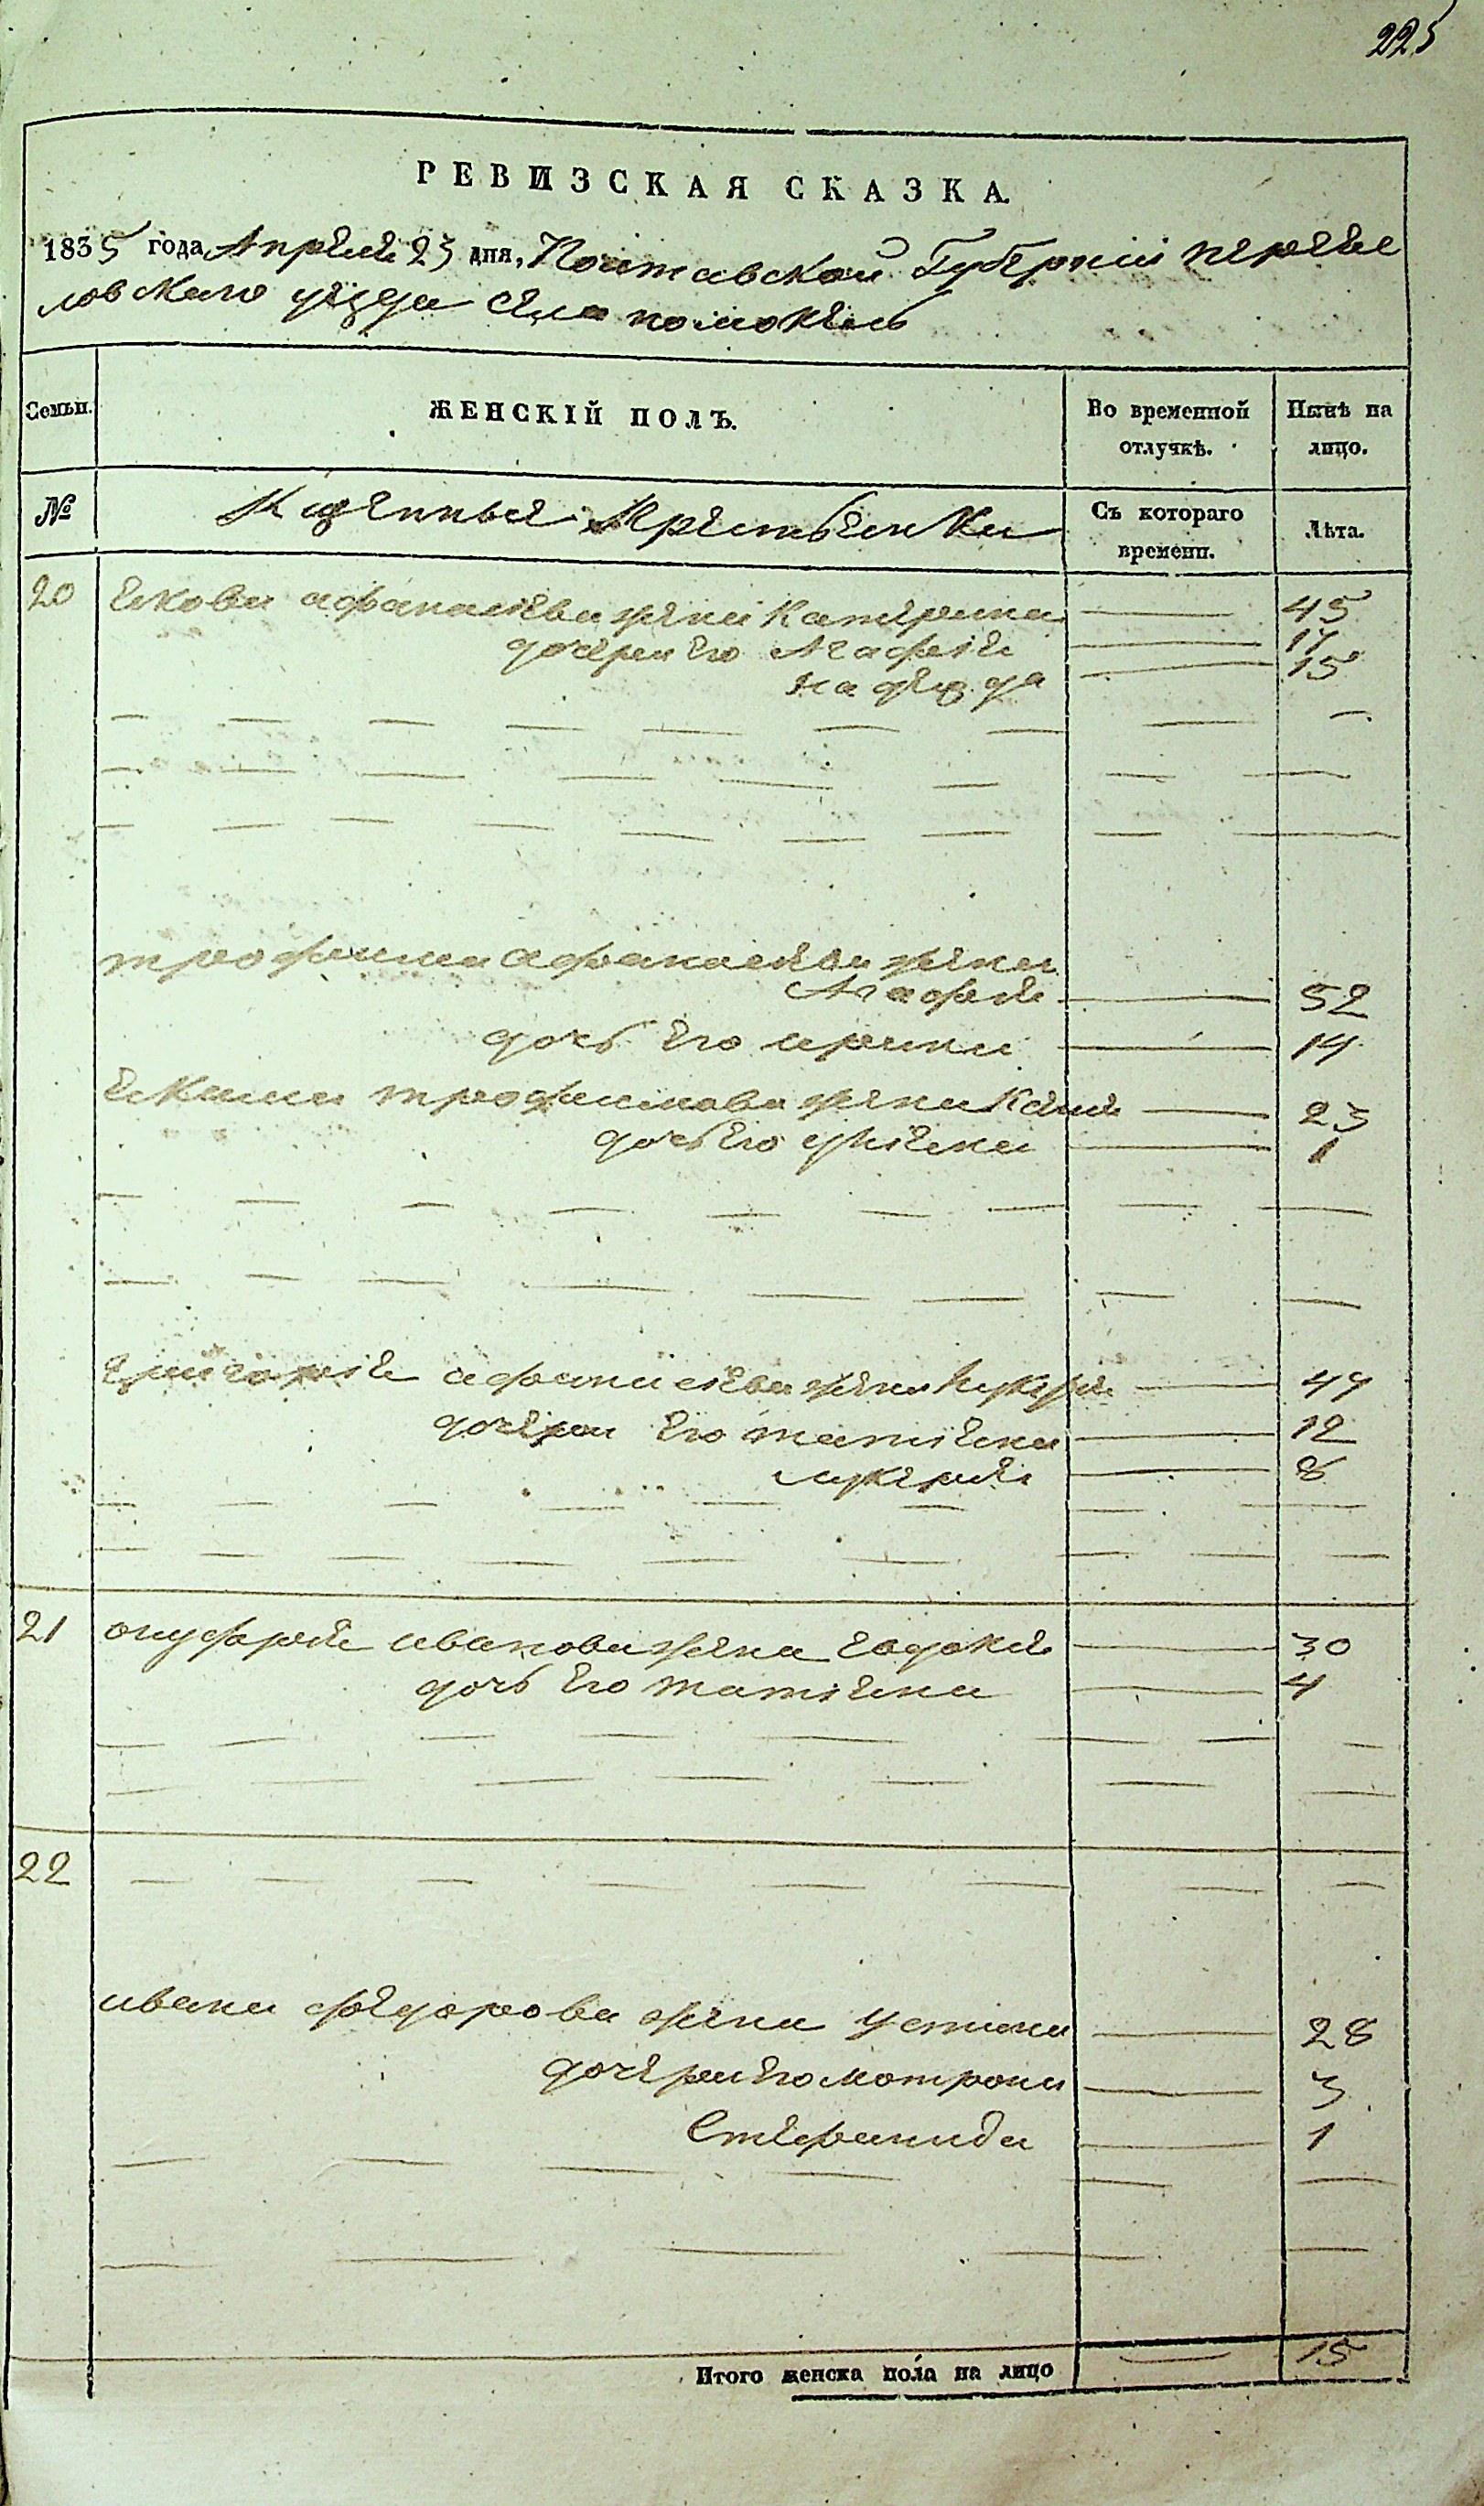 225
РЕВИЗСКАЯ СКАЗКА.
1835 года Апреля 23 дня, Полтавской Губернии переяс
ловскаго уезда села
Семьи.
ЖЕНСКІЙ ПОЛЪ.
Во временной отлучкѣ.
Нынѣ на лицо.
№
Казенные Крестьянки
Съ котораго времени.
Лѣта.
20 Якова афанасиева жена Катерина — 45
дочери его Агафия — 17
надежда — 15
трофима афанасиева жена
Агафия — 52
дочь его ирина — 14
Якима трофимова жена — 23
дочь его улияна — 1
григория афанасиева жена лукерия — 44
дочери его татияна — 12
лукерия — 8
21 онуфрия иванова жена Евдокия — 30
дочь его татияна — 4
22
ивана федорова жена устина — 28
дочери его мотрона — 3
Степанида — 1
Итого женска пола на лицо — 15